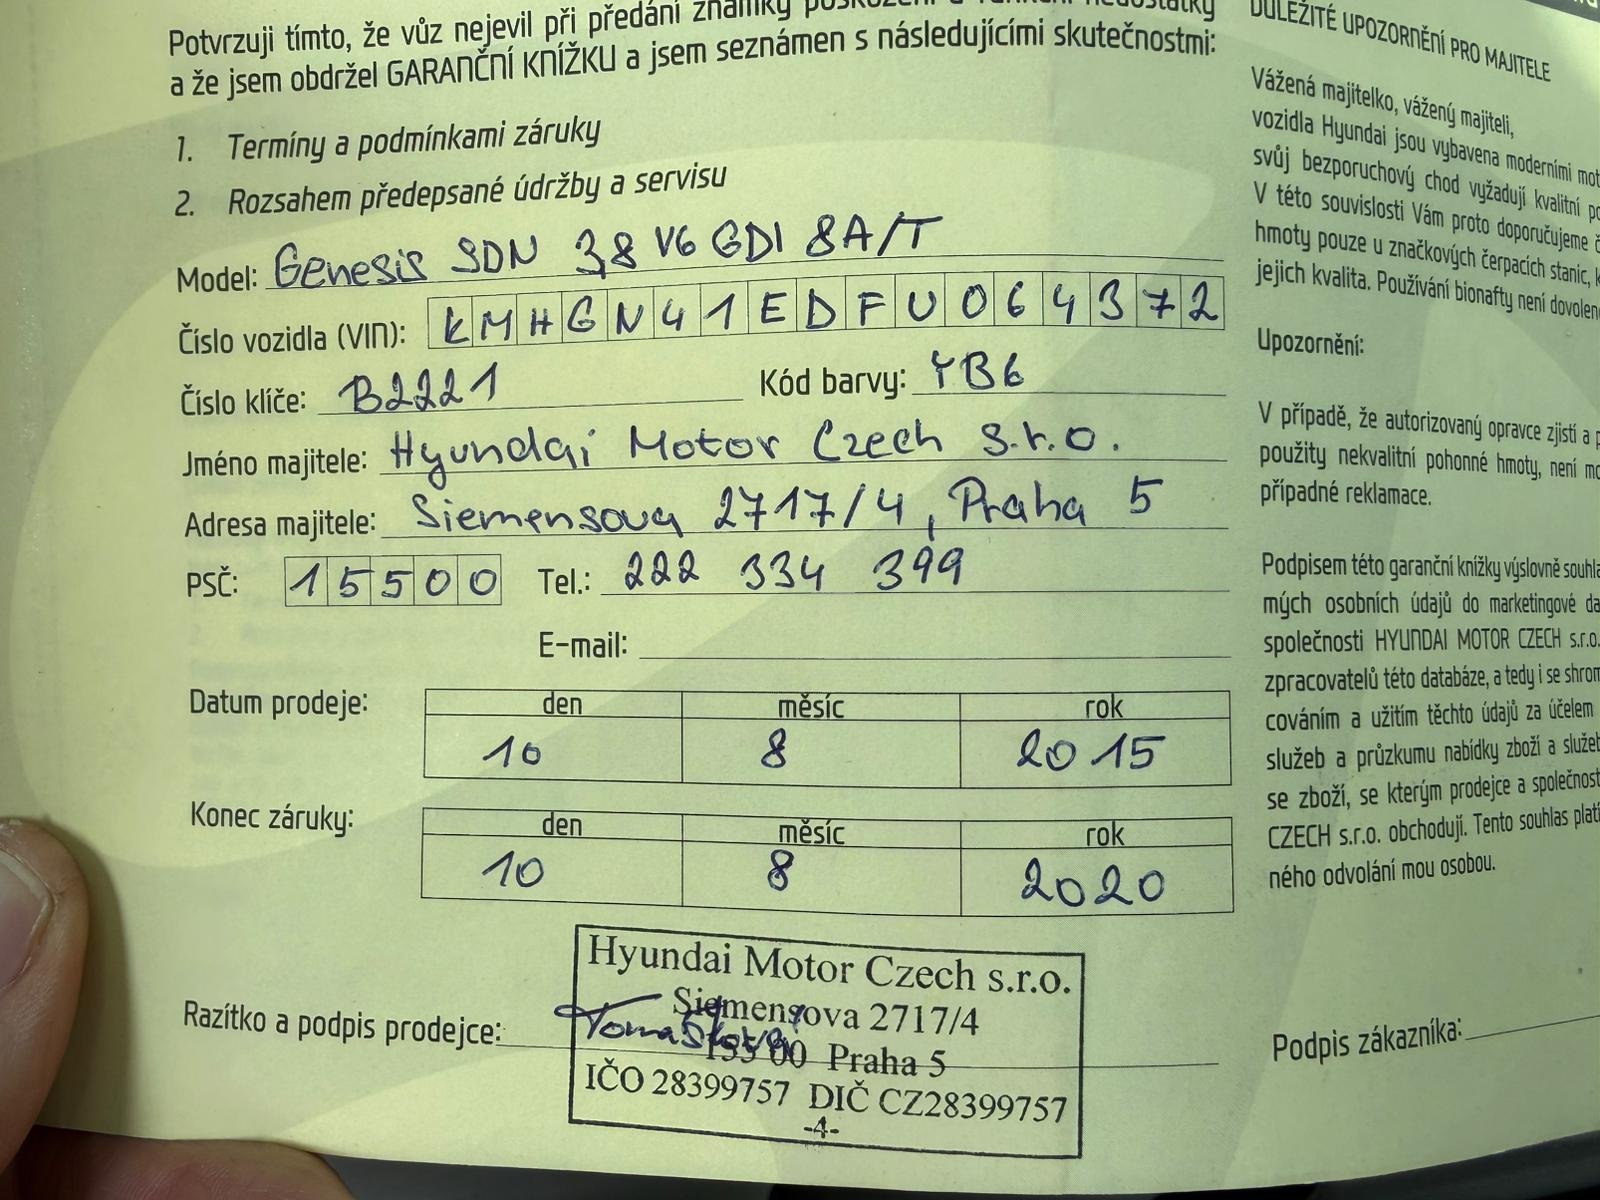 Potvrzuji tímto, že vůz nejevil při předání známky
a že jsem obdržel GARANČNÍ KNÍŽKU a jsem seznámen s následujícími skutečnostmi:
1. Termíny a podmínkami záruky
2. Rozsahem předepsané údržby a servisu
Model: Genesis SDN 3,8 V6 GDI 8A/T
Číslo vozidla (VIN): KMHGN41EDFU064372
Číslo klíče: B2221 Kód barvy: YB6
Jméno majitele: Hyundai Motor Czech s.r.o.
Adresa majitele: Siemensova 2717/4, Praha 5
PSČ: 15500 Tel.: 222 334 399
E-mail:
Datum prodeje: den měsíc rok
10 8 2015
Konec záruky: den měsíc rok
10 8 2020
Hyundai Motor Czech s.r.o.
Siemensova 2717/4
Razítko a podpis prodejce:
155 00 Praha 5
IČO 28399757 DIČ CZ28399757
-4-
DŮLEŽITÉ UPOZORNĚNÍ PRO MAJITELE
Vážená majitelko, vážený majiteli,
vozidla Hyundai jsou vybavena moderními mot
svůj bezporuchový chod vyžadují kvalitní po
V této souvislosti Vám proto doporučujeme č
hmoty pouze u značkových čerpacích stanic, k
jejich kvalita. Používání bionafty není dovolen
Upozornění:
V případě, že autorizovaný opravce zjistí a p
použity nekvalitní pohonné hmoty, není mo
případné reklamace.
Podpisem této garanční knížky výslovně souhla
mých osobních údajů do marketingové da
společnosti HYUNDAI MOTOR CZECH s.r.o.
zpracovatelů této databáze, a tedy i se shrom
cováním a užitím těchto údajů za účelem
služeb a průzkumu nabídky zboží a služeb
se zboží, se kterým prodejce a společnost
CZECH s.r.o. obchodují. Tento souhlas platí
ného odvolání mou osobou.
Podpis zákazníka: